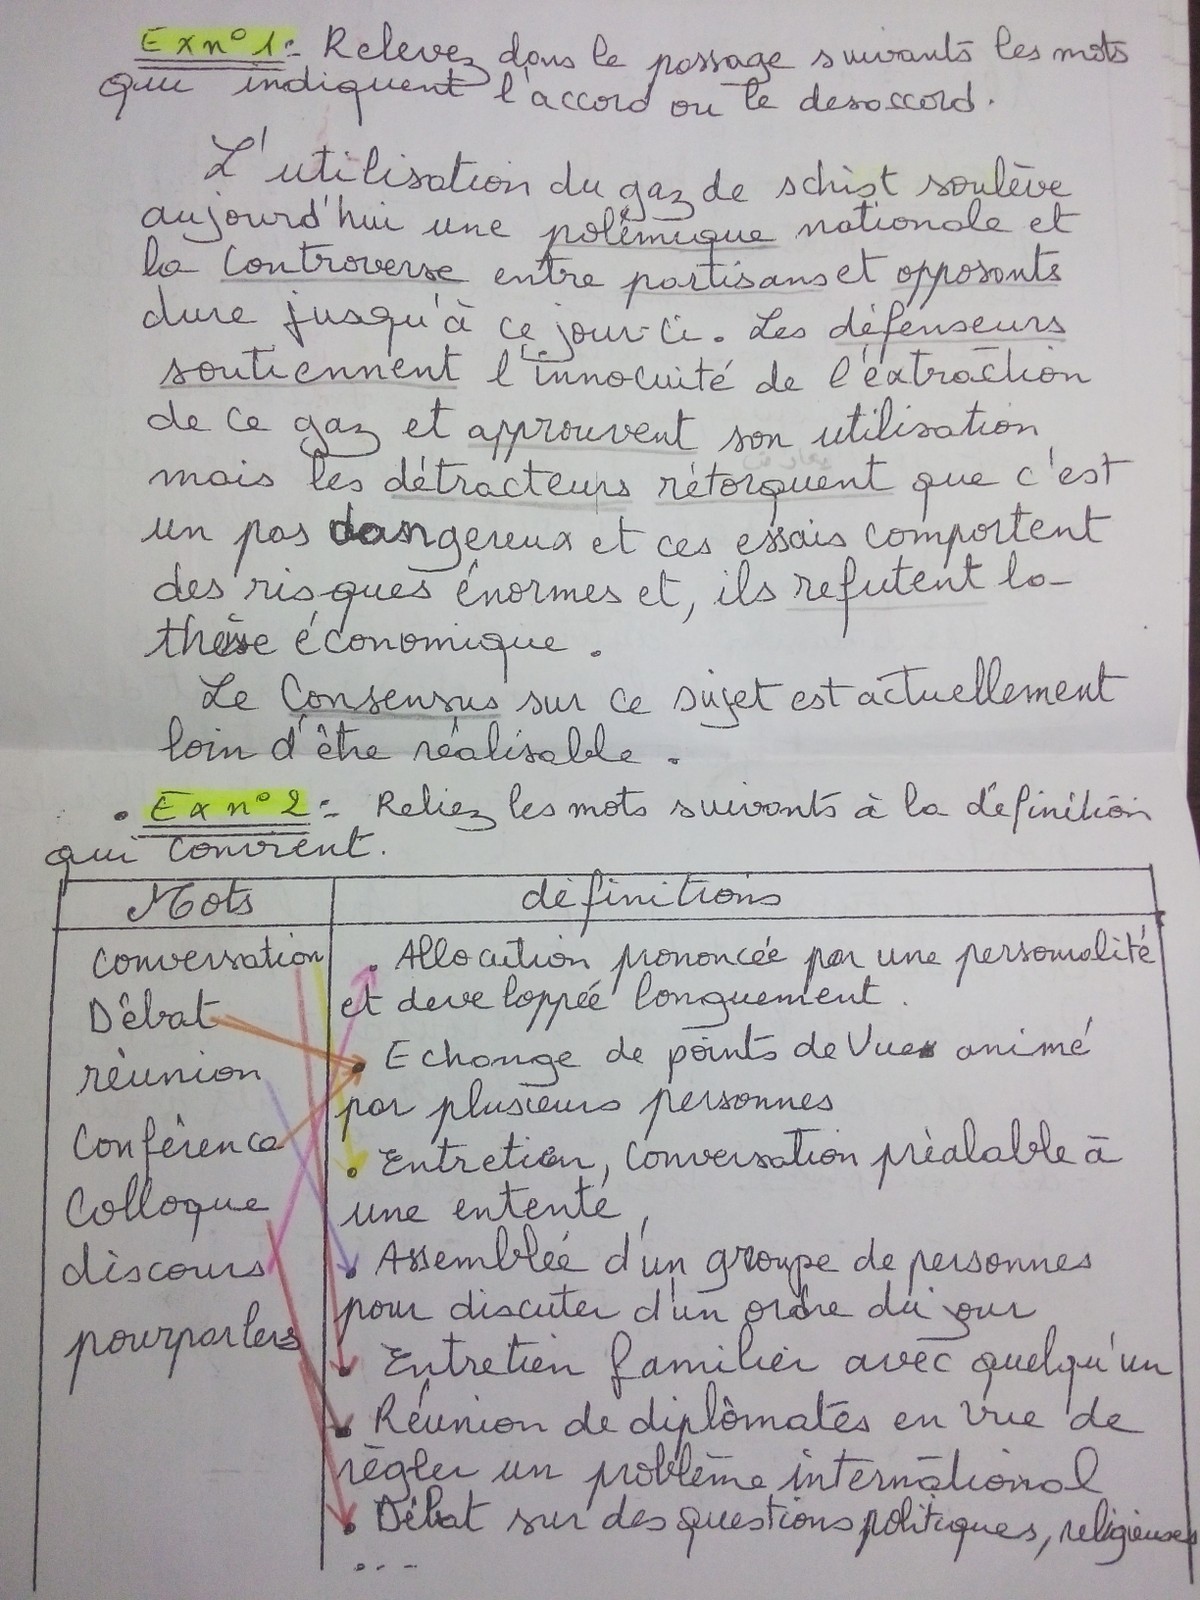 Ex n° 1:- Relevez dans le passage suivants les mots
qui indiquent l'accord ou le desaccord.
L'utilisation du gaz de schist soulève
aujourd'hui une polémique nationale et
la Controverse entre partisans et opposants
dure jusqu'à ce jour-ci. Les défenseurs
soutiennent l'innocuité de l'éxtraction
de ce gaz et approuvent son utilisation
mais les détracteurs rétorquent que c'est
un pas dangereux et ces essais comportent
des risques énormes et, ils refutent la-
thèse économique.
Le Consensus sur ce sujet est actuellement
loin d'être réalisable.
. Ex n° 2:- Reliez les mots suivants à la définition
qui convient.
Mots définitions
Conversation . Allocution prononcée par une personnalité
et developpée longuement.
Débat . Echange de points de Vues animé
réunion par plusieurs personnes
Conférence . Entretien, Conversation préalable à
Colloque une entente,
discours . Assemblée d'un groupe de personnes
pour discuter d'un ordre du jour
pourparlers . Entretien familier avec quelqu'un
. Réunion de diplômates en vue de
règler un problème international
. Débat sur des questions politiques, religieuses
...